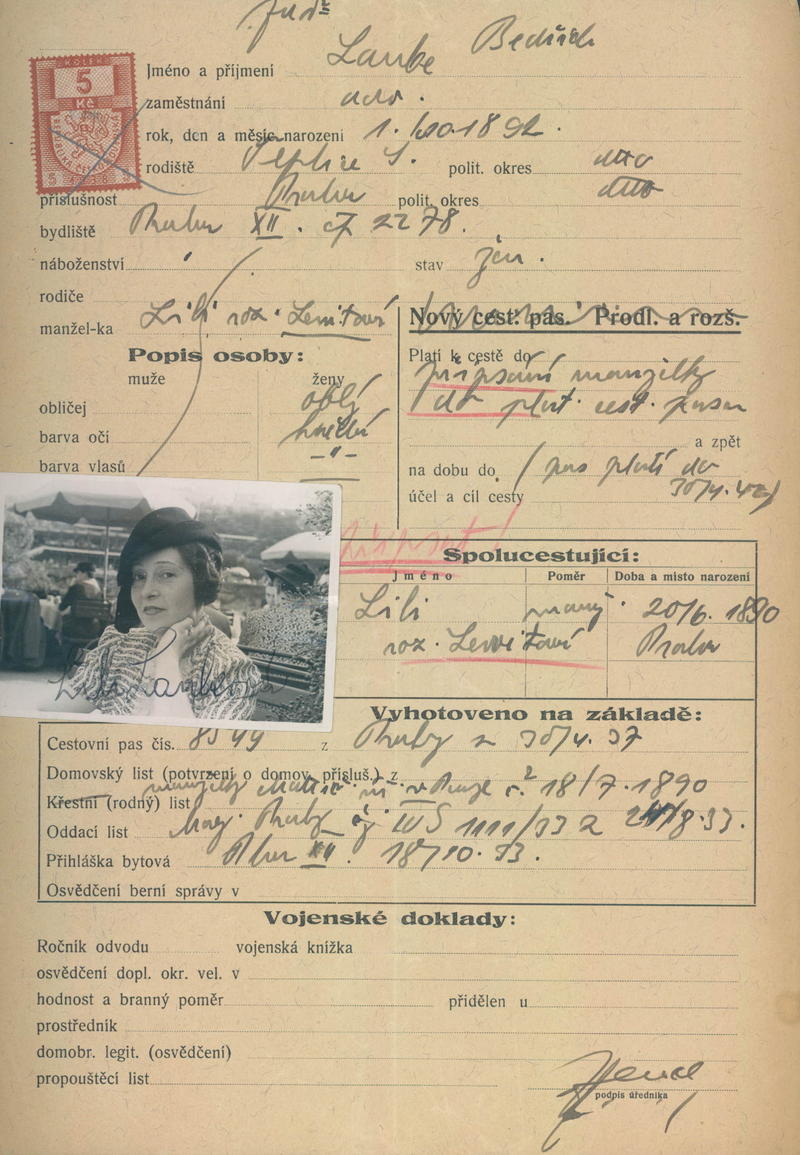 JUDr
Laube Bedřich
KOLEK
5
Kč
REPUBLIKA ČESKOSLOVENSKÁ
5 5
Jméno a příjmení
zaměstnání adv.
rok, den a měsíc narození 1. 1892.
rodiště Teplice Š. polit. okres dtto
příslušnost Praha polit. okres dtto
bydliště Praha XII. čp 2278.
náboženství stav žen.
rodiče
manžel-ka Lili roz.
Nový cest. pas. Prodl. a rozš.
Popis osoby:
muže ženy
obličej oblý
barva očí hnědé
barva vlasů -"-
Platí k cestě do
připsání manželky
do plat. cest. pasu
a zpět
na dobu do pas platí do
účel a cíl cesty 30/4.42
připsat!
Spolucestující:
Jméno Poměr Doba a místo narození
Lili manž. 20/6.1890
roz. Praha
Lili Laubeová
Vyhotoveno na základě:
Cestovní pas čís. z Prahy z 30/4.37
Domovský list (potvrzení o domov. přísluš.) z
manželky v Praze č. 18/7.1890
Křestní (rodný) list
Oddací list Mag. Prahy čj 1111/33 z 8.33.
Přihláška bytová Praha XII. 18/10.33.
Osvědčení berní správy v
Vojenské doklady:
Ročník odvodu vojenská knížka
osvědčení dopl. okr. vel. v
hodnost a branný poměr přidělen u
prostředník
domobr. legit. (osvědčení)
propouštěcí list
podpis úředníka